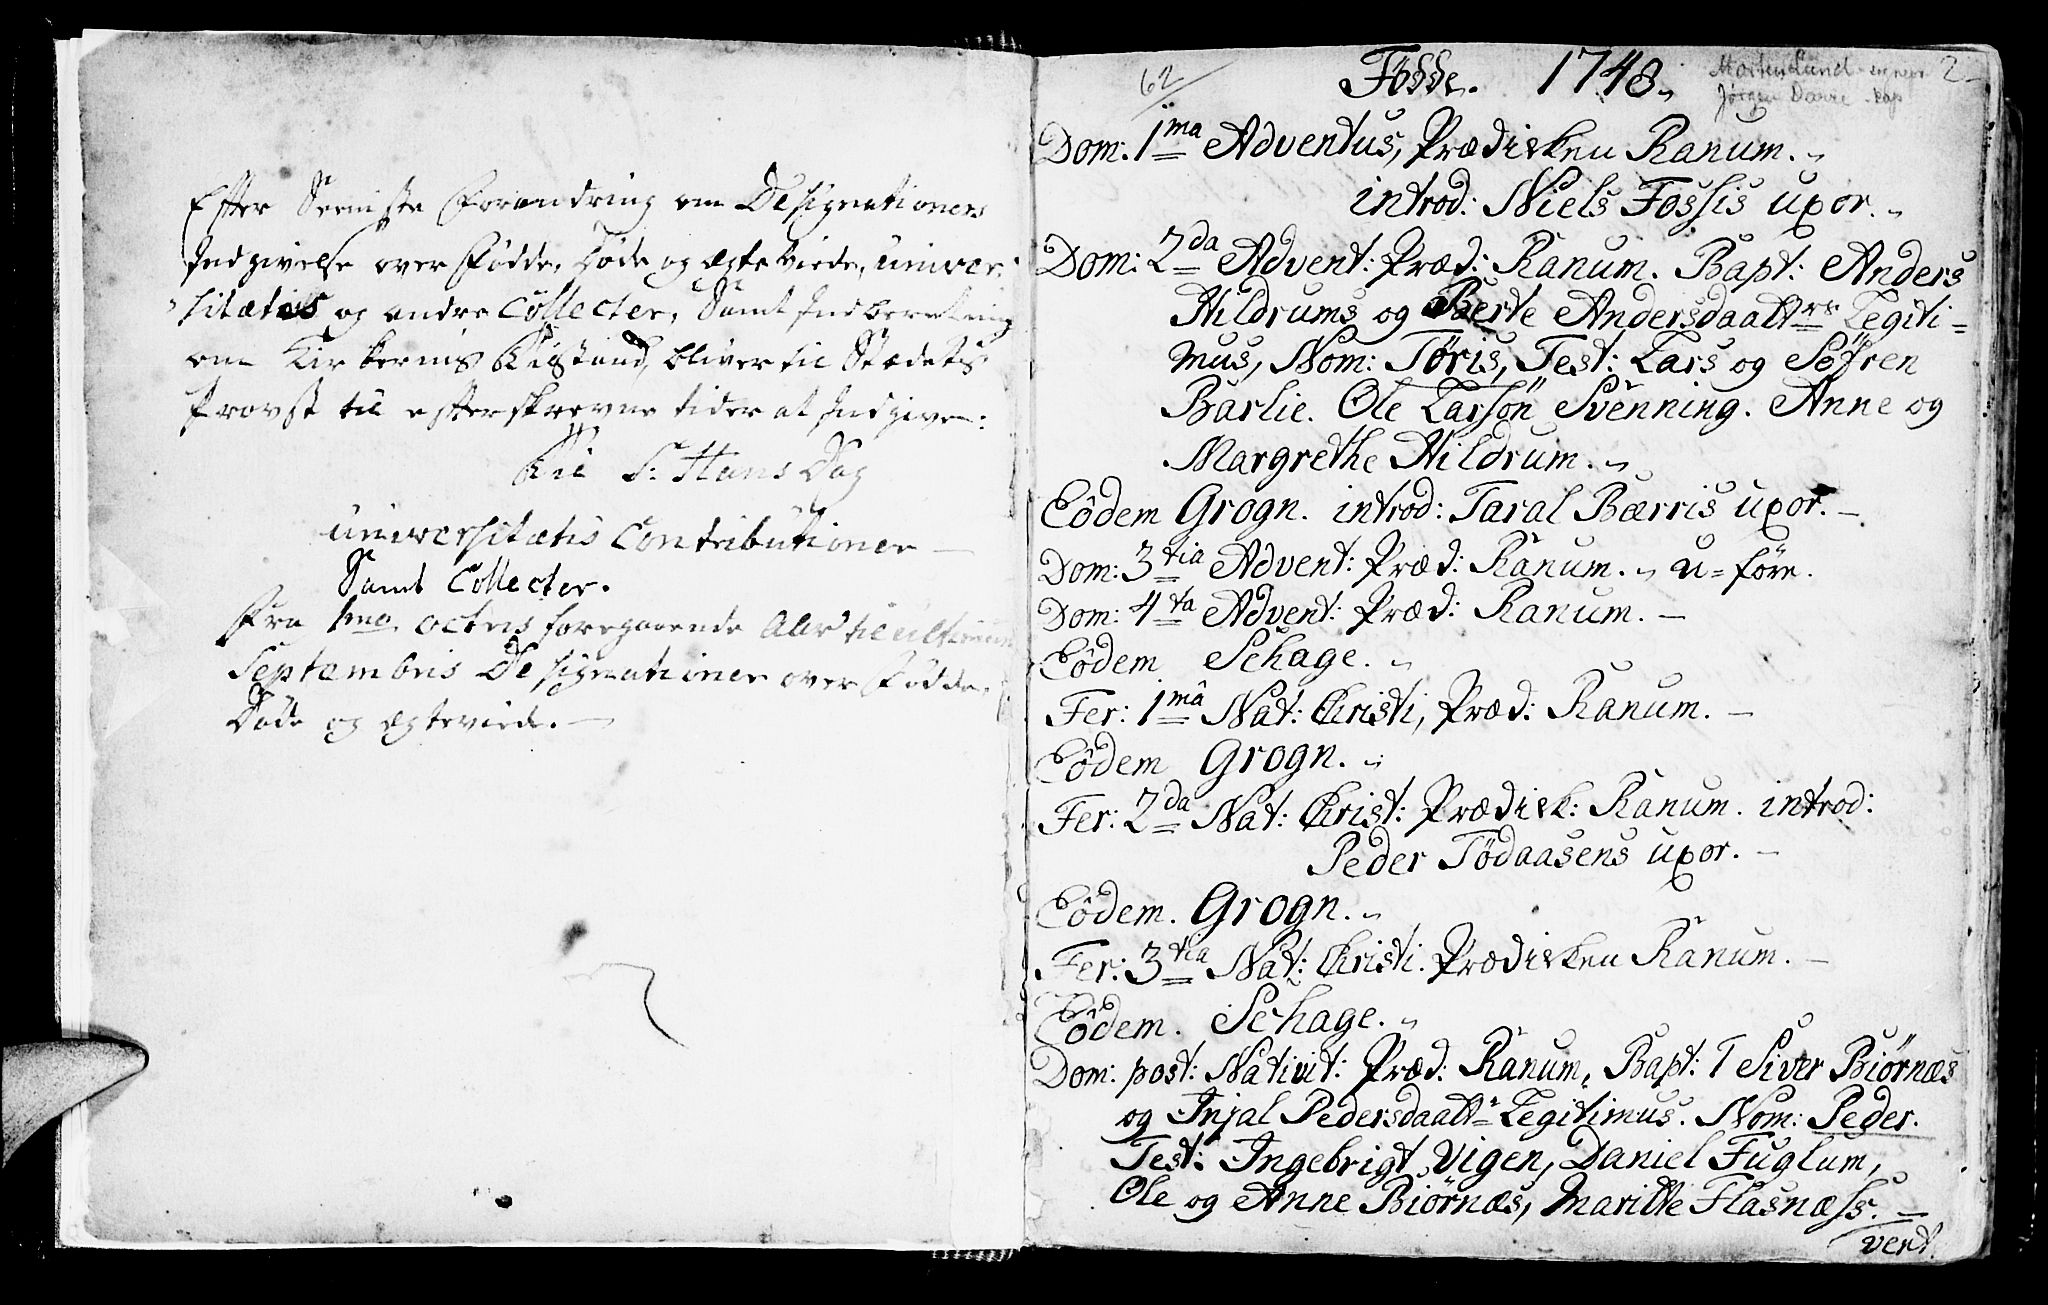 Efter Seeniste Forandring om Designationers
Indgivelse over Fødde, Døde og Ægte Viede, univer-
sitætets og andre Collecter, Samt Indberetning
om Kirkernis Tilstand, bliver til Stædets
Provst til efterskrevne tider at Indgives:
Til S: Hans Dag
universitætis Contributioner —
Samt Collecter.
Fra 1ma octbris foregaaende Aar til ultimum
Septembris Designationer over Fødde,
Døde og Ægteviede. —
62 Fødde. 1748. Morten Lund 2
Jørgen Darre kap
Dom: 1ma Adventus, Prædicken Ranum.
introd: Niels Fossis uxor.
Dom: 2da Advent: Præd: Ranum. Bapt: Anders
Hildrums og Berte Andersdaattrs Legiti=
mus, Nom: Tøris, Test: Lars og Søfren
Barlie. Ole Larsøn Svenning. Anne og
Margrethe Hildrum.
Eôdem Grogn. introd: Taral Bærris uxor. —
Dom: 3tia Advent: Præd: Ranum. U=føre.
Dom: 4ta Advent: Præd: Ranum. —
Eôdem Schage.
Fer: 1mâ Nat: Christi, Præd: Ranum. —
Eôdem Grogn.
Fer: 2da Nat: Christ: Prædick: Ranum. introd:
Peder Tødaasens uxor. —
Eôdem. Grogn.
Fer: 3tia Nat: Christi. Prædicken Ranum. —
Eôdem. Schage.
Dom: post: Nativit: Præd: Ranum, Bapt: T Siver Biørnæs
og Injal Pedersdaattr Legitimus. Nom: Peder.
Test: Ingebrigt Vigen, Daniel Fuglum,
Ole og Anne Biørnæs, Maritte Flasnæss. —
vert